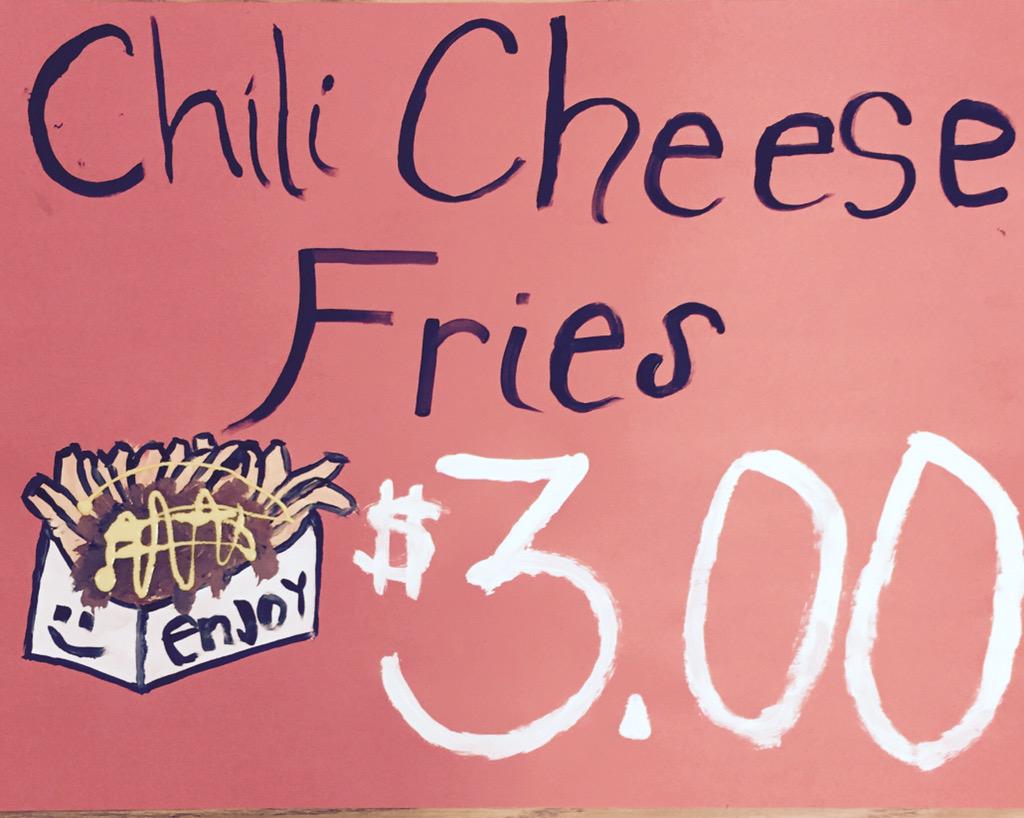 Chili Cheese
Fries
$3.00
enJOY